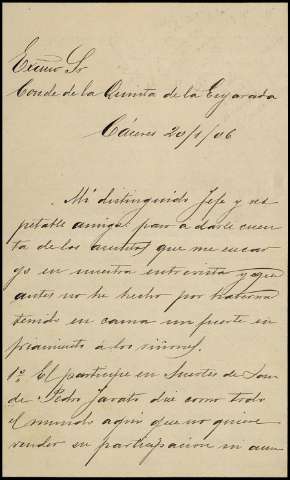 Excmo Sr
Conde de la Quinta de la Enjarada
Cáceres 20/1/06
Mi distinguido Jefe y res
petable amigo: paso a darle cuen
ta de los asuntos que me encar
go en nuestra entrevista y que
antes no he hecho por haberme
tenido en cama un fuerte en
friamiento á los riñones.
1º El participe en Suertes de
de Pedro dice como todo
el mundo aqui que no quiere
vender su participacion in